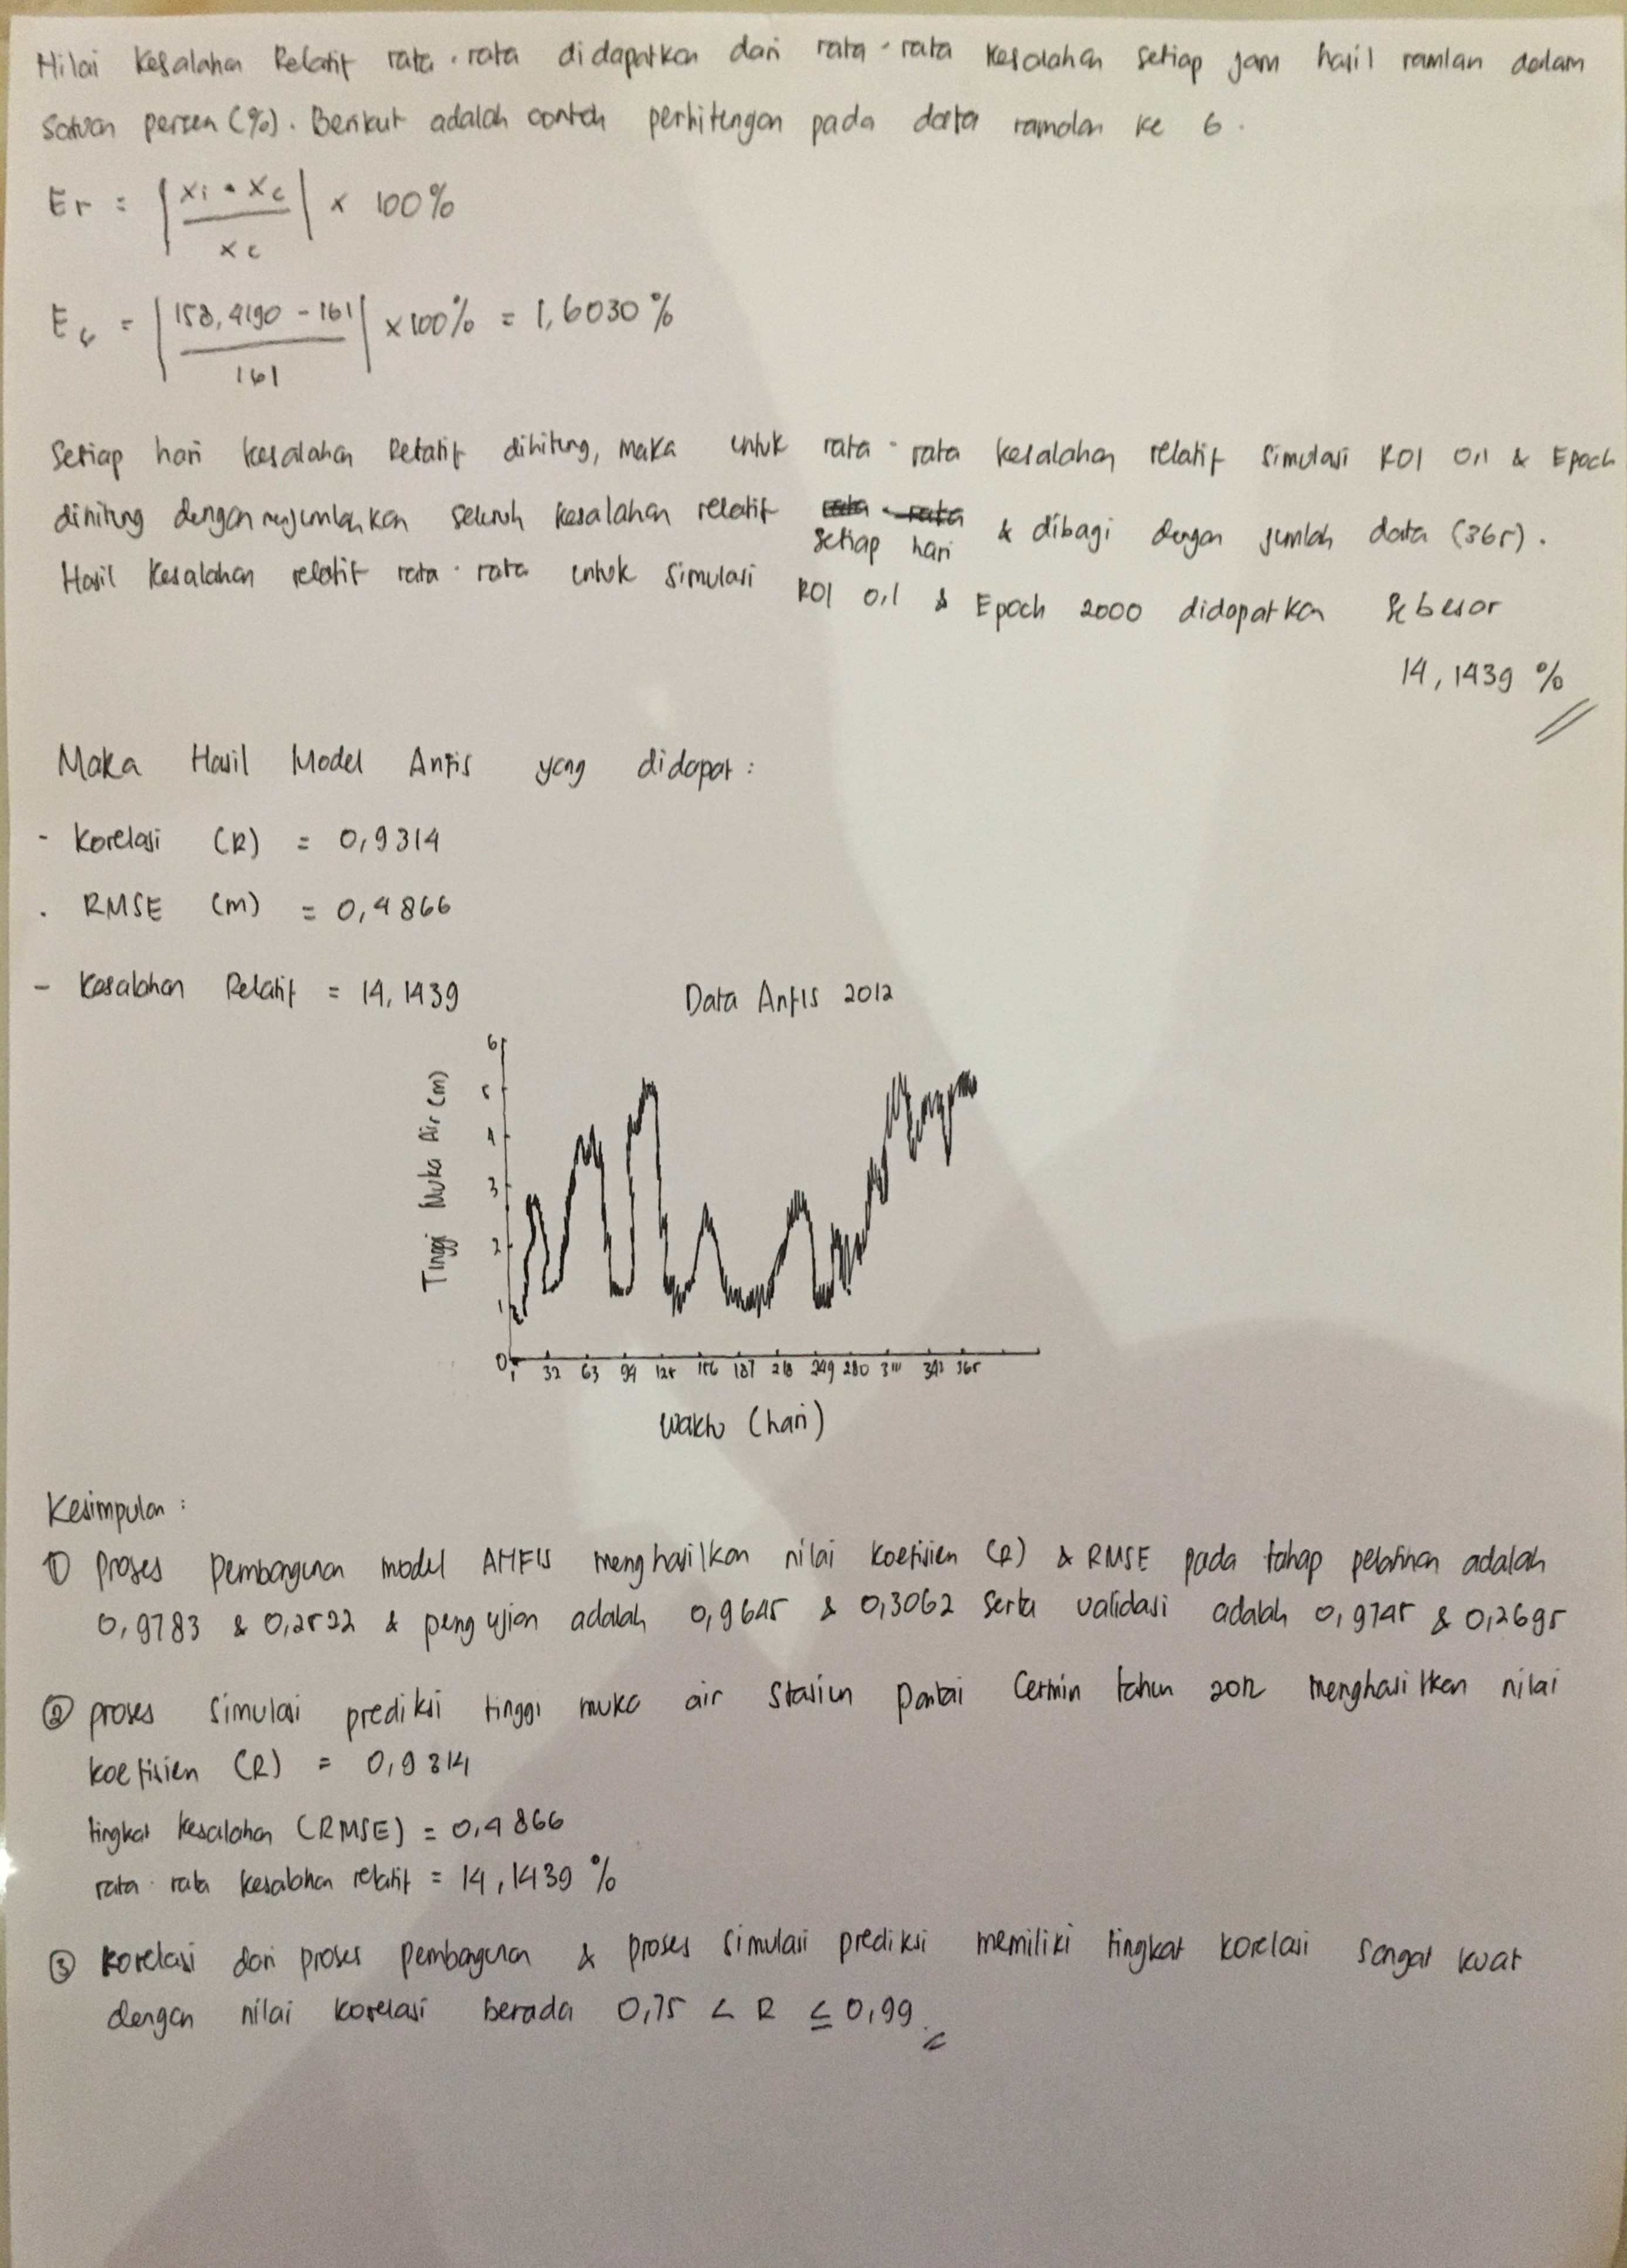 Nilai Kesalahan Relatif rata-rata didapatkan dari rata-rata kesalahan setiap jam hasil ramlan dalam
satuan persen (%). Berikut adalah contoh perhitungan pada data ramalan ke 6.
Er = |xi - xc / xc| x 100%
E6 = |158,4190 - 161 / 161| x 100% = 1,6030 %
Setiap hari kesalahan Relatif dihitung, maka untuk rata-rata kesalahan relatif simulasi ROI 0,1 & Epoch
dihitung dengan menjumlahkan seluruh kesalahan relatif setiap hari & dibagi dengan jumlah data (365).
Hasil Kesalahan relatif rata-rata untuk simulasi ROI 0,1 & Epoch 2000 didapatkan sebesar
14,1439 %
Maka Hasil Model Anfis yang didapat :
- Korelasi (R) = 0,9314
- RMSE (m) = 0,4866
- Kesalahan Relatif = 14,1439
Data Anfis 2012
Tinggi Muka Air (m)
6
5
4
3
2
1
0
1 32 63 94 125 156 187 218 249 280 311 342 365
Waktu (hari)
Kesimpulan :
① Proses Pembangunan model ANFIS menghasilkan nilai koefisien (R) & RMSE pada tahap pelatihan adalah
0,9783 & 0,2522 & pengujian adalah 0,9645 & 0,3062 serta validasi adalah 0,9745 & 0,2695
② proses simulasi prediksi tinggi muka air stasiun pantai Cermin tahun 2012 menghasilkan nilai
koefisien (R) = 0,9314
tingkat kesalahan (RMSE) = 0,4866
rata-rata kesalahan relatif = 14,1439 %
③ Korelasi dari proses pembangunan & proses simulasi prediksi memiliki tingkat korelasi sangat kuat
dengan nilai korelasi berada 0,75 < R ≤ 0,99.